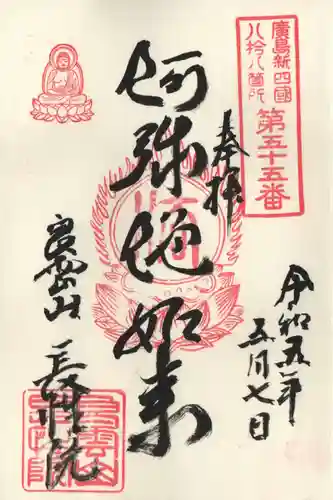 廣島新四國
八拾八箇所
第五十五番
奉拝
阿弥陀如来
令和五年
五月七日
長性院